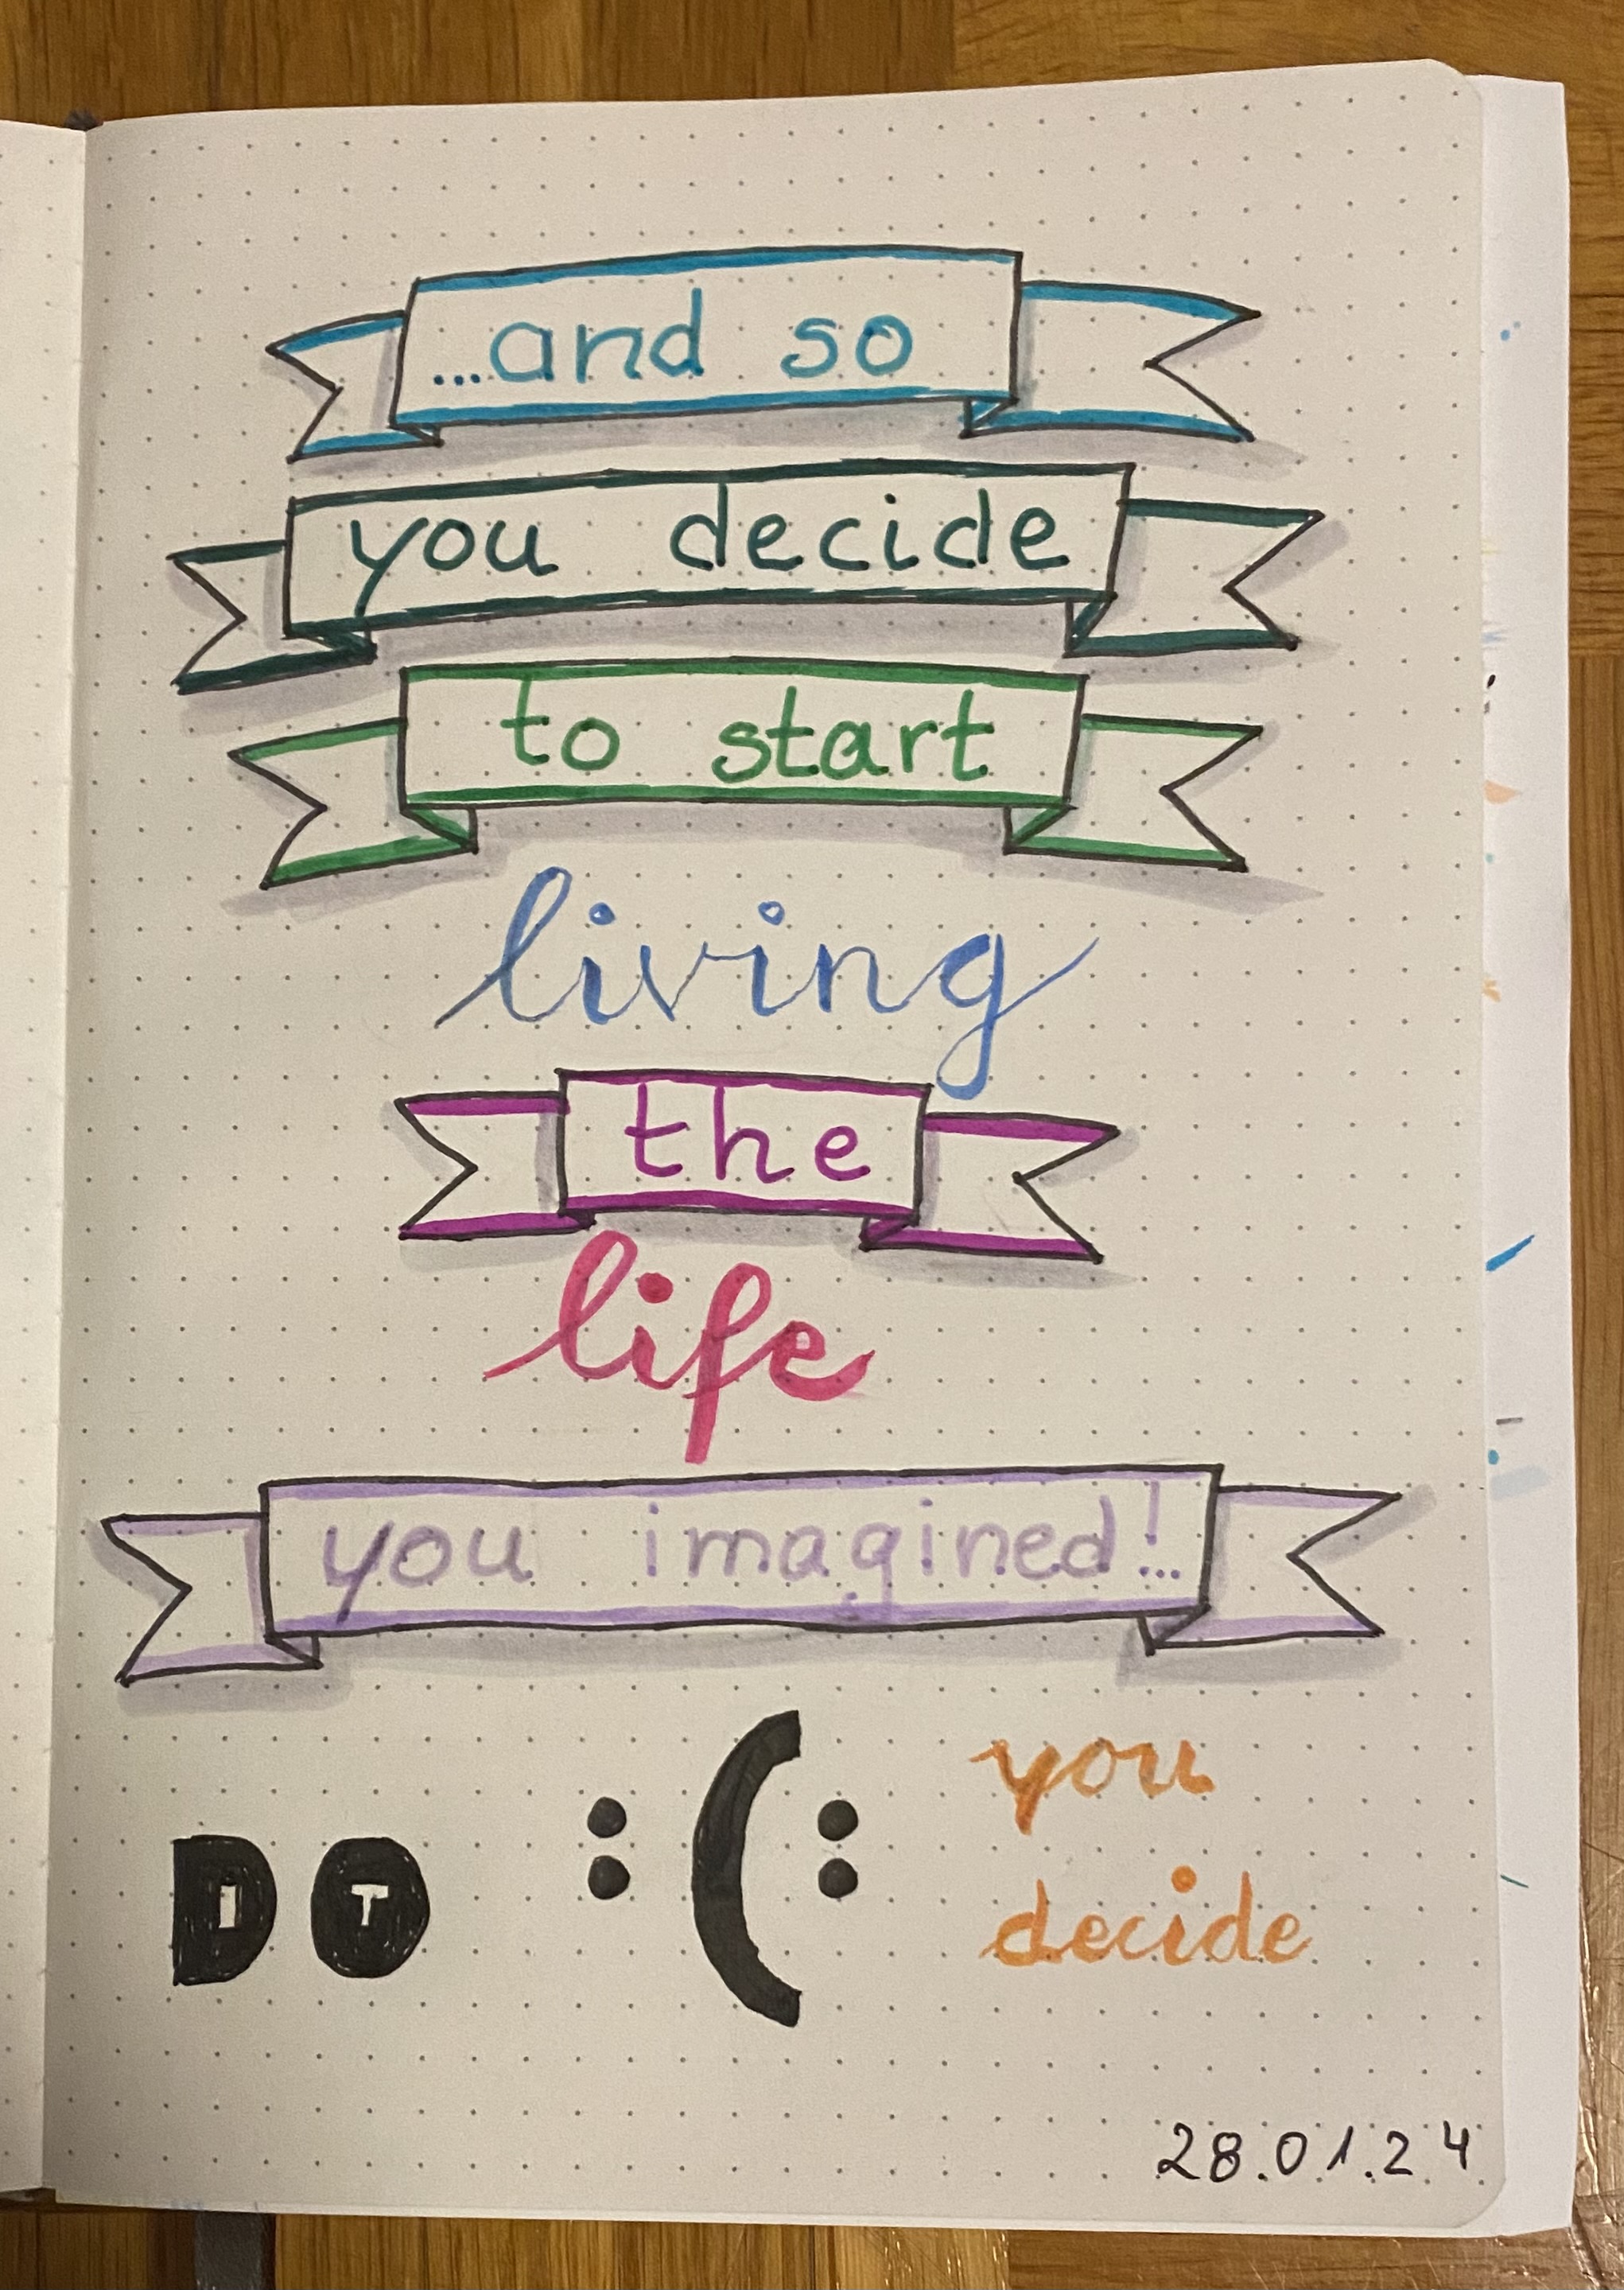 ...and so
you decide
to start
living
the
life
you imagined!...
DO
IT
:(:
you
decide
28.01.24